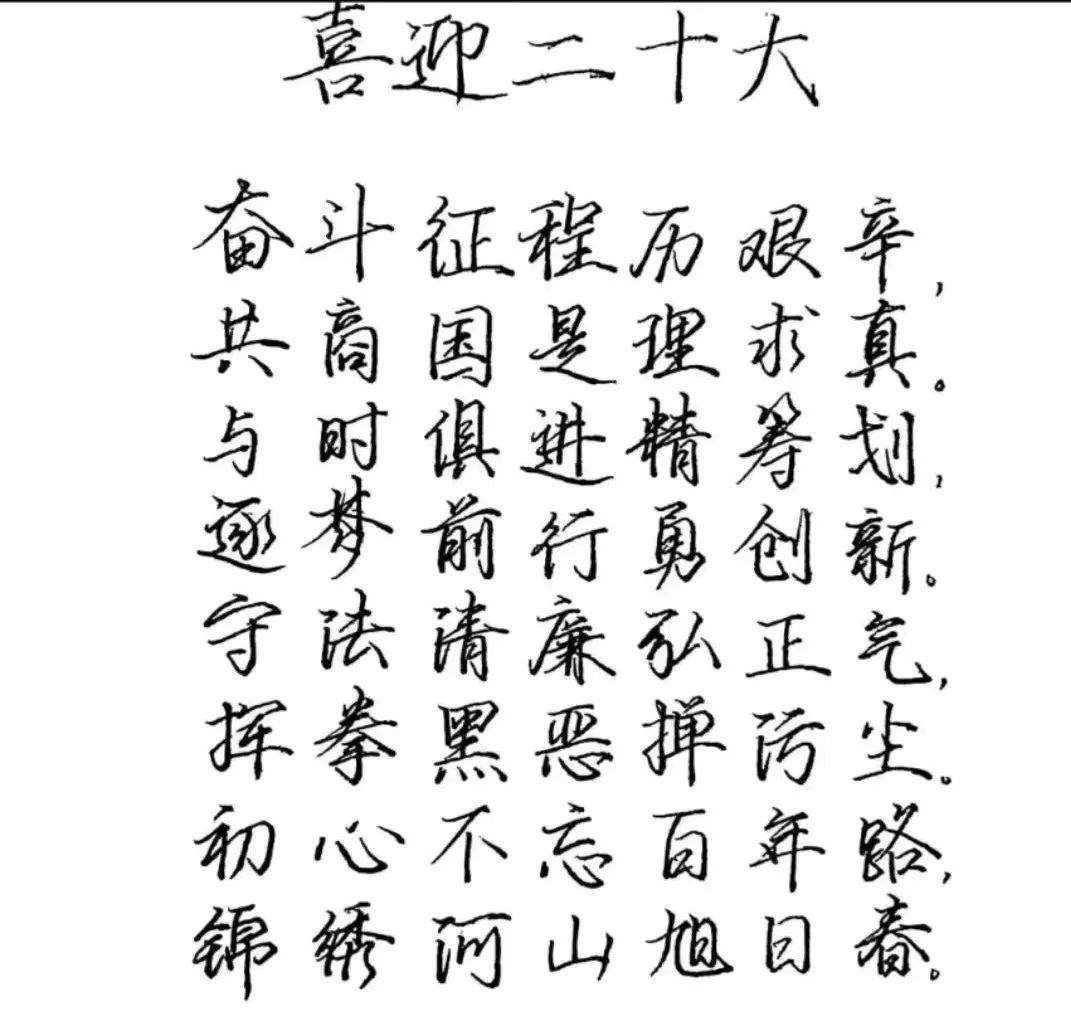 喜迎二十大
奋斗征程历艰辛，
共商国是理求真。
与时俱进精筹划，
逐梦前行勇创新。
守法清廉弘正气，
挥拳黑恶掸污尘。
初心不忘百年路，
锦绣河山旭日春。